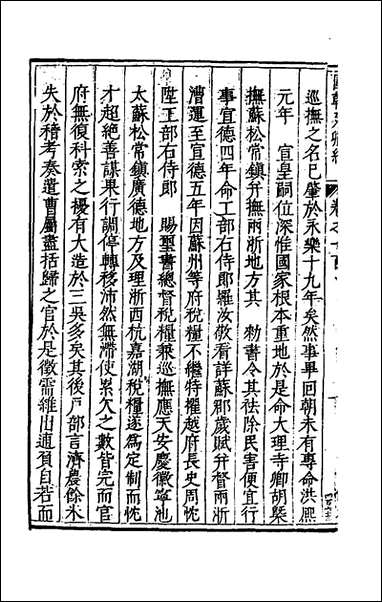 國朝列卿紀 卷之一百
巡撫之名已肇於永樂十九年矣然事畢回朝未有專命洪熙
元年 宣皇嗣位深惟國家根本重地於是命大理寺卿胡槩
撫蘇松常鎮并撫兩浙地方其 勑書令其祛除民害便宜行
事宣德四年命工部右侍郎羅汝敬看詳蘇郡歲賦并督兩浙
漕運至宣德五年因蘇州等府稅糧不繼特擢越府長史周忱
陞工部右侍郎 賜璽書總督稅糧兼巡撫應天安慶徽寧池
太蘇松常鎮廣德地方及理浙西杭嘉湖稅糧遂爲定制而忱
才超絕善謀果行調停轉移沛然無滯使累欠之數皆完而官
府無復科索之擾有大造於三吳多矣其後戶部言濟農餘米
失於稽考奏遣曹屬盡括歸之官於是徵需雜出逋負自若而